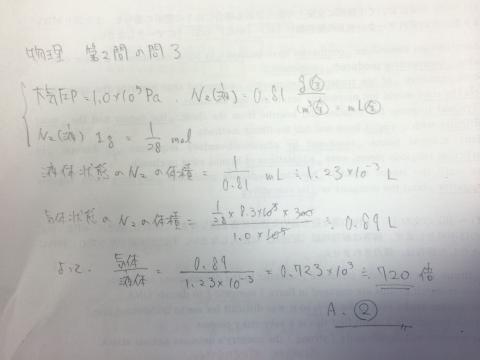 物理 第2問の問3
大気圧P=1.0×10⁵Pa、N₂(液)=0.81 g/(cm³=mL)
N₂(液) 1g = 1/28 mol
液体状態のN₂の体積 = 1/0.81 mL ≒ 1.23×10⁻³ L
気体状態のN₂の体積 = (1/28 × 8.3×10³ × 300)/(1.0×10⁵) ≒ 0.89 L
よって、気体/液体 = 0.89/(1.23×10⁻³) = 0.723×10³ ≒ 720 倍
A. ②